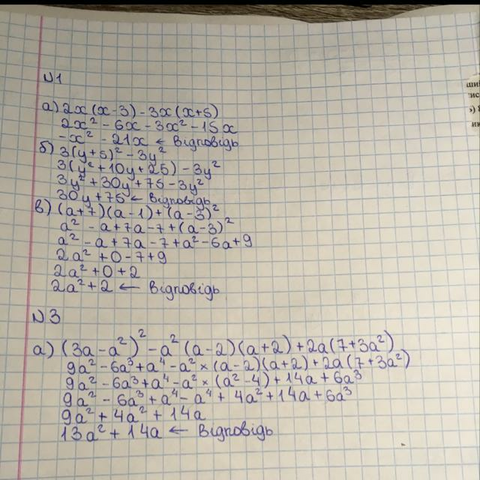 N1
а) 2x(x-3)-3x(x+5)
2x² - 6x - 3x² - 15x
-x² - 21x ← Відповідь
б) 3(y+5)² - 3y²
3(y² + 10y + 25) - 3y²
3y² + 30y + 75 - 3y²
30y + 75 ← Відповідь
в) (a+7)(a-1)+(a-3)²
a² - a + 7a - 7 + (a-3)²
a² - a + 7a - 7 + a² - 6a + 9
2a² + 0 - 7 + 9
2a² + 0 + 2
2a² + 2 ← Відповідь
N3
а) (3a - a²)² - a²(a-2)(a+2) + 2a(7+3a²)
9a² - 6a³ + a⁴ - a² × (a-2)(a+2) + 2a(7+3a²)
9a² - 6a³ + a⁴ - a² × (a² - 4) + 14a + 6a³
9a² - 6a³ + a⁴ - a⁴ + 4a² + 14a + 6a³
9a² + 4a² + 14a
13a² + 14a ← Відповідь